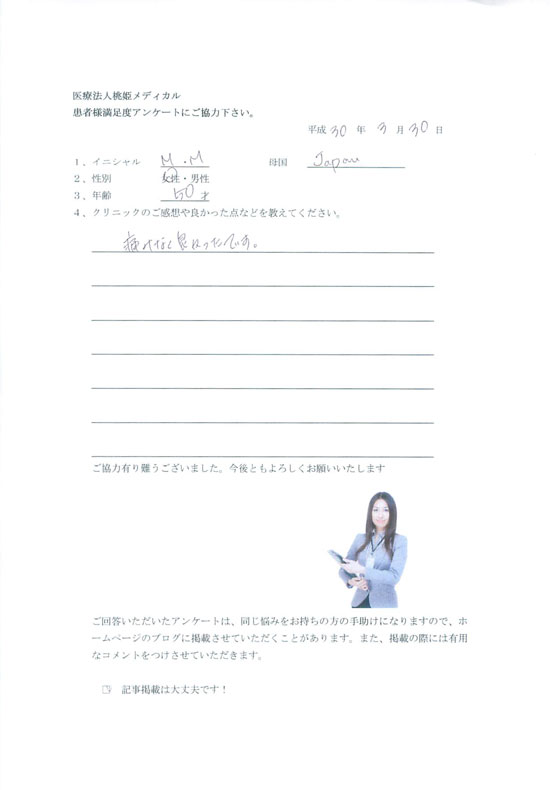 医療法人桃姫メディカル
患者様満足度アンケートにご協力下さい。
平成 30 年 3 月 30 日
1、イニシャル M.M 母国 Japan
2、性別 女性・男性
3、年齢 50才
4、クリニックのご感想や良かった点などを教えてください。
痛みなく良かったです。
ご協力有り難うございました。今後ともよろしくお願いいたします
ご回答いただいたアンケートは、同じ悩みをお持ちの方の手助けになりますので、ホ
ームページのブログに掲載させていただくことがあります。また、掲載の際には有用
なコメントをつけさせていただきます。
記事掲載は大丈夫です！